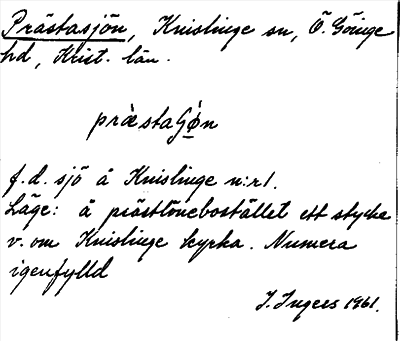 Prästasjön, Knislinge sn, Ö. Göinge
hd, Krist. län.
præ̀staɢǿn
f.d. sjö å Knislinge n:r 1.
Läge: å prästlönebostället ett stycke
v. om Knislinge kyrka. Numera
igenfylld
I. Ingers 1961.